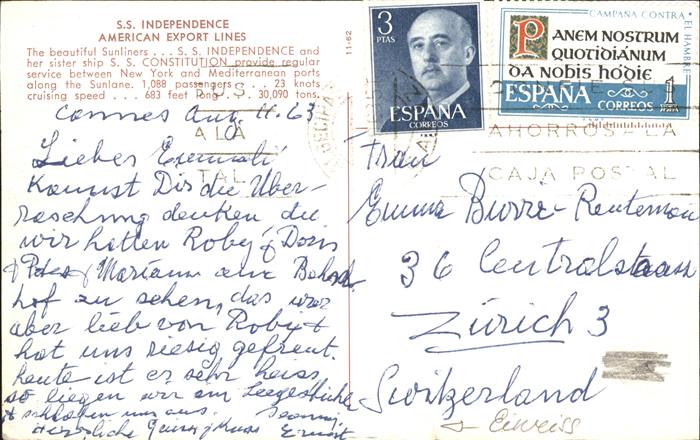 S.S. INDEPENDENCE
AMERICAN EXPORT LINES
The beautiful Sunliners . . . S. S. INDEPENDENCE and
her sister ship S. S. CONSTITUTION provide regular
service between New York and Mediterranean ports
along the Sunlane. 1,088 passengers . . . 23 knots
cruising speed . . . 683 feet long . . . 30,090 tons.
11-62
Cannes 11.63
Lieber
Kannst Dir die Über-
raschung denken die
wir hatten Roby & Doris
& Peter & Mariann am
hof zu sehen, das war
aber lieb von Roby &
hat uns riesig gefreut.
heute ist es sehr heiss
so liegen wir am
& schlafen nur aus.
Herzliche
3
PTAS
ESPAÑA
CORREOS
CAMPAÑA CONTRA EL HAMBRE
PANEM NOSTRUM
QUOTIDIÁNUM
DA NOBIS HÓDIE
ESPAÑA CORREOS 1 PTA
PUS
A LA
TAL
AHORROS LA
CAJA POSTAL
Frau
Emma Burri-Renteman
36 Centralstrasse
Zürich 3
Switzerland